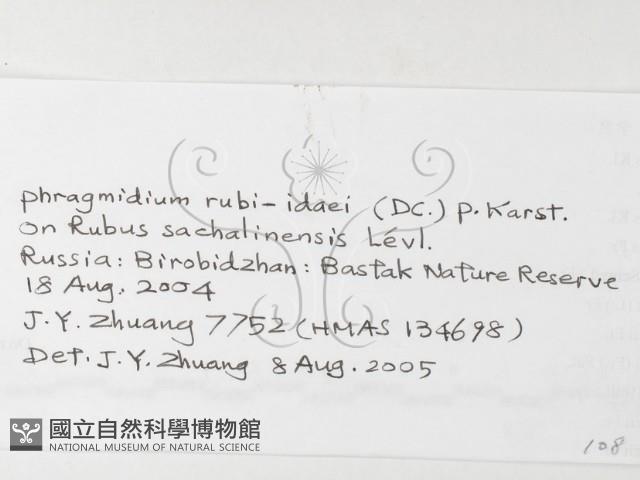 phragmidium rubi-idaei (DC.) P. Karst.
on Rubus sachalinensis Lévl.
Russia: Birobidzhan: Bastak Nature Reserve
18 Aug. 2004
J.Y. Zhuang 7752 (HMAS 134698)
Det. J.Y. Zhuang 8 Aug. 2005
國立自然科學博物館
NATIONAL MUSEUM OF NATURAL SCIENCE
108